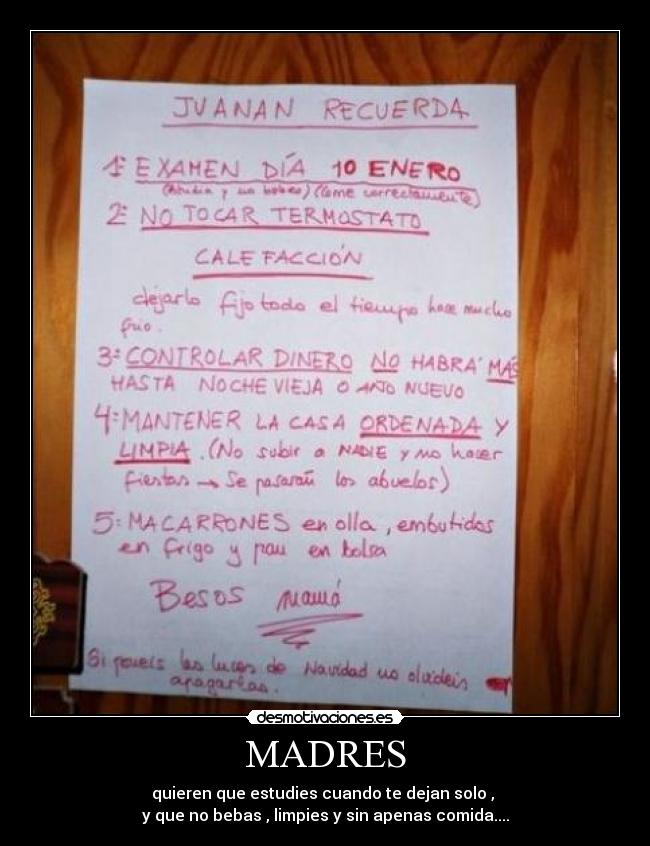 JUANAN RECUERDA
1º EXAMEN DÍA 10 ENERO
(Estudia y no bebas) (Come correctamente)
2º NO TOCAR TERMOSTATO
CALEFACCIÓN
dejarlo fijo todo el tiempo hace mucho
frio.
3º CONTROLAR DINERO NO HABRÁ MÁS
HASTA NOCHE VIEJA O AÑO NUEVO
4º MANTENER LA CASA ORDENADA Y
LIMPIA. (No subir a NADIE y no hacer
fiestas → Se pasarán los abuelos)
5º MACARRONES en olla, embutidos
en frigo y pan en bolsa
Besos mamá
Si poneis las luces de Navidad no olvideis
apagarlas.
desmotivaciones.es
MADRES
quieren que estudies cuando te dejan solo ,
y que no bebas , limpies y sin apenas comida....